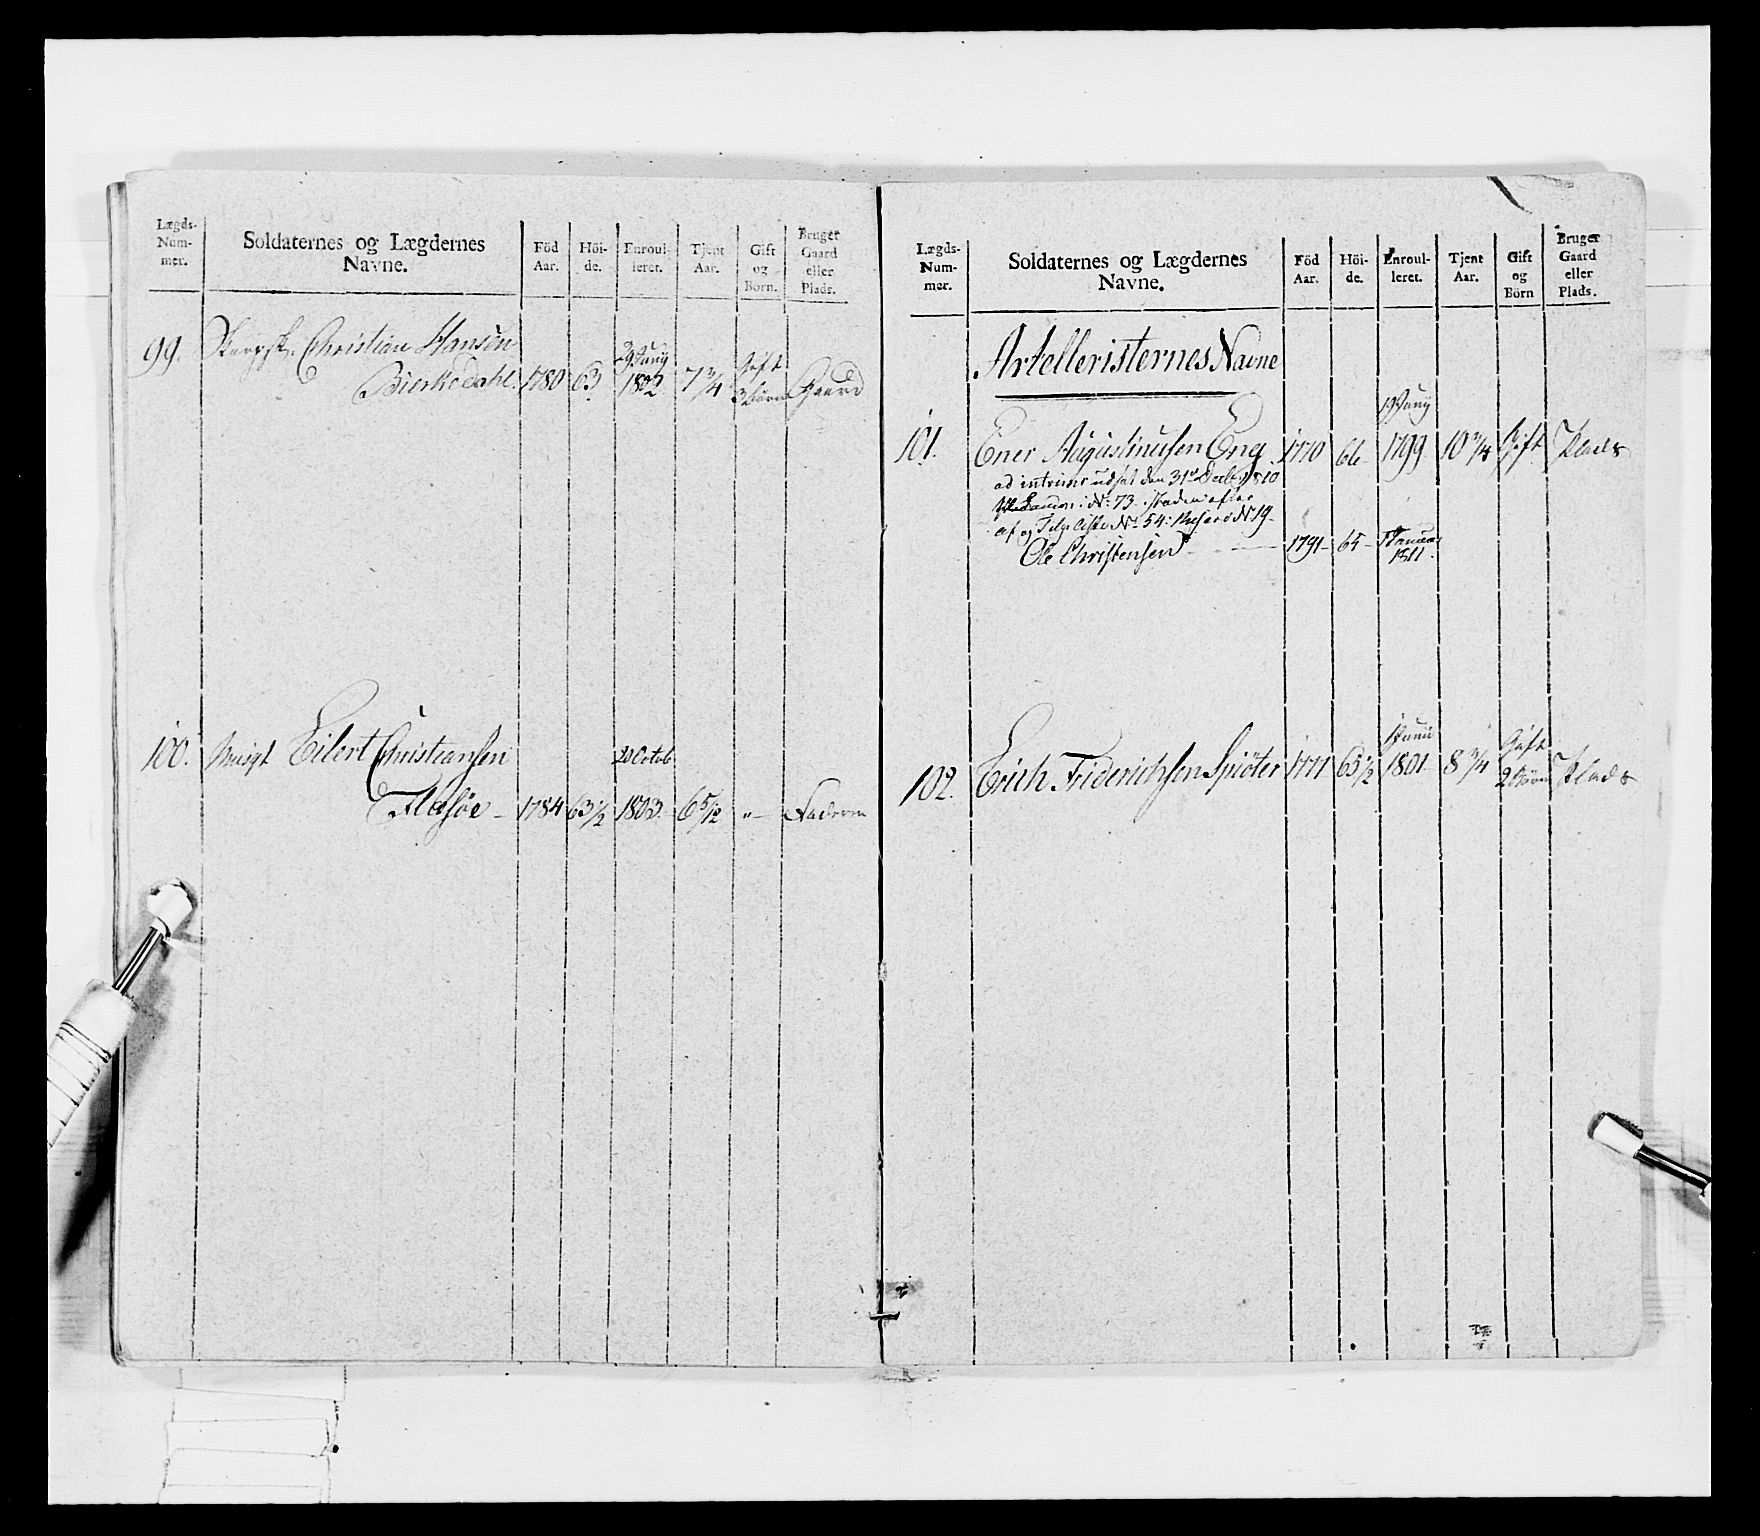 Lægds-
Num-
mer.
Soldaternes og Lægdernes
Navne.
Föd
Aar.
Höi-
de.
Enroul-
leret.
Tjent
Aar.
Gift
og
Börn.
Bruger
Gaard
eller
Plads.
99. Skarpsk. Christian Hansen
Bierkedahl. 1780 63 1802 7 3/4 Gift 3 Börn Gaard
100. Musqt Eilert Christiansen
20 Octob
1784 63 1/2 1803. 6 5/12 "– Faderen
Lægds-
Num-
mer.
Soldaternes og Lægdernes
Navne.
Föd
Aar.
Höi-
de.
Enroul-
leret.
Tjent
Aar.
Gift
og
Börn
Bruger
Gaard
eller
Plads.
Artelleristernes Navne
101. Ener Augustinusen Eng 1770 66 1799 10 3/4 Gift Plads
ad intrims udsat den 31te Decbr 1810
N: 73
af og Følge Liste No 54: N 19
Ole Christensen 1791 – 65 – 1 Januar
1811.
102. Erich Friderichsen Spiöter 1771 65 1/2 1801 8 3/4 Gift 2 Börn Plads